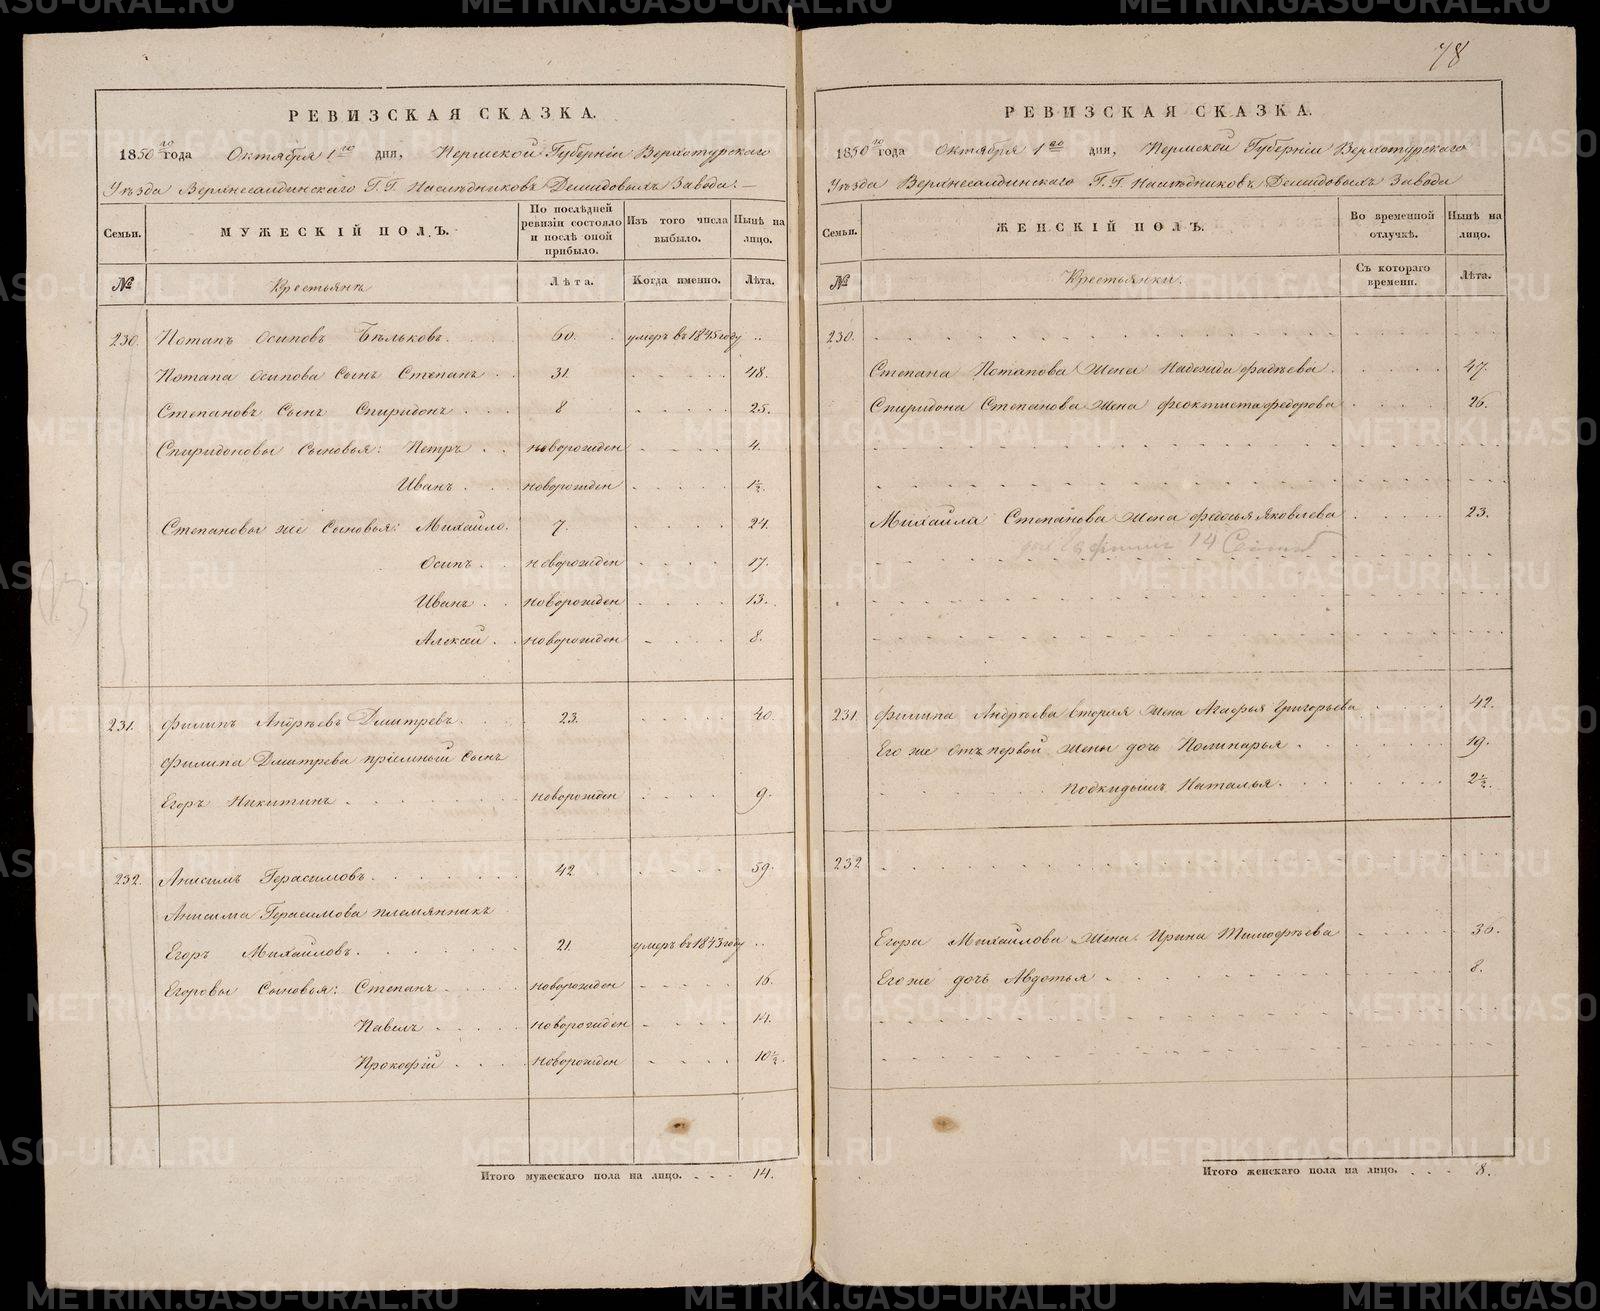 78
РЕВИЗСКАЯ СКАЗКА.
1850го года Октября 1го дня, Пермской Губерніи Верхотурскаго
Уѣзда Верхнесалдинскаго Г.Г. Наслѣдниковъ Демидовыхъ Завода.
Семьи.
МУЖЕСКІЙ ПОЛЪ.
По послѣдней ревизіи состояло и послѣ оной прибыло.
Изъ того числа выбыло.
Нынѣ на лицо.
№
Крестьянъ
Лѣта.
Когда именно.
Лѣта.
230. Потапъ Осиповъ Бѣльковъ. 60. умеръ въ 1845 году ..
Потапа Осипова Сынъ Степанъ 31. 48.
Степановъ Сынъ Спиридонъ 8 25.
Спиридоновы Сыновья: Петръ новорожден 4.
Иванъ новорожден 1½.
Степановы же Сыновья: Михайло. 7. 24.
Осипъ новорожден 17.
Иванъ новорожден 13.
Алексѣй новорожден 8.
231. Филипъ Андрѣевъ Дмитревъ. 23. 40.
Филипа Дмитрева пріемный Сынъ
Егоръ Никитинъ новорожден 9.
232. Анисимъ Герасимовъ 42 59.
Анисима Герасимова племянникъ
Егоръ Михайловъ. 21. умеръ въ 1843 году ..
Егоровы Сыновья: Степанъ новорожден 16.
Павелъ новорожден 14.
Прокофій новорожден 10½.
Итого мужескаго пола на лицо. 14.
РЕВИЗСКАЯ СКАЗКА.
1850го года Октября 1го дня, Пермской Губерніи Верхотурскаго
Уѣзда Верхнесалдинскаго Г.Г. Наслѣдниковъ Демидовыхъ Завода
Семьи.
ЖЕНСКІЙ ПОЛЪ.
Во временной отлучкѣ.
Нынѣ на лицо.
№
Крестьянки.
Съ котораго времени.
Лѣта.
230.
Степана Потапова Жена Надежда Фадѣева 47.
Спиридона Степанова Жена Феоктиста Федорова 26.
Михайла Степанова Жена Федосья Яковлева 23.
14
231. Филипа Андрѣева вторая Жена Агафья Григорьева 42.
Его же отъ первой жены дочь Полинарья 19.
Подкидышъ Наталья. 2½.
232
Егора Михайлова Жена Ирина Тимофѣева 36.
Его же дочь Авдотья 8.
Итого женскаго пола на лицо. 8.
METRIKI.GASO-URAL.RU